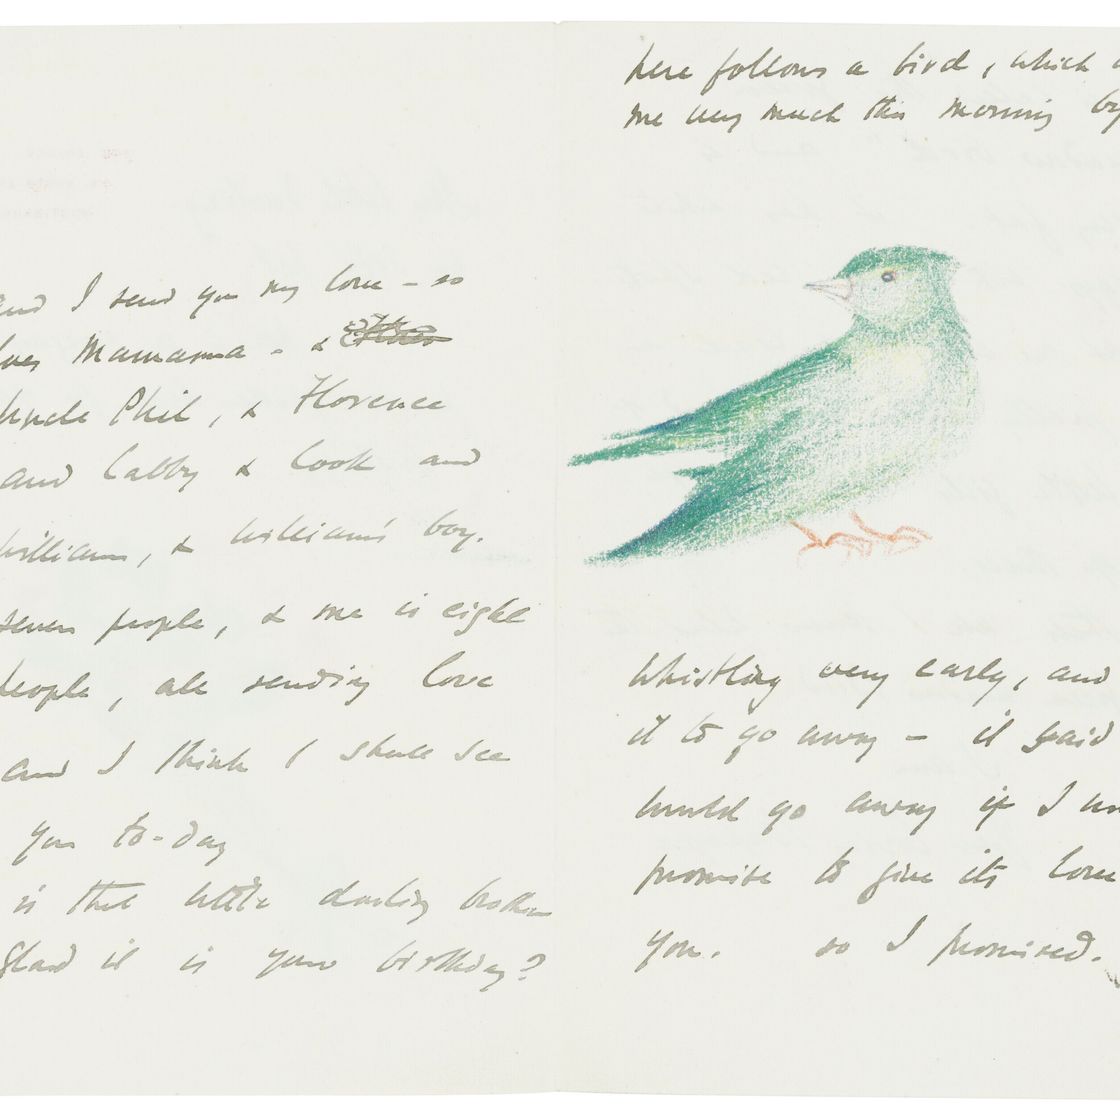 and I send you my love – so
Mamama – &
Uncle Phil, & Florence
and Cabby & Cook and
William, & William's boy.
seven people, & me is eight
people, all sending love
and I think I shall see
you to-day
is that little darling brother
glad it is your birthday?
here follows a bird, which
me very much this morning by
whistling very early, and
it to go away – it said
would go away if I
promise to give its love
you. so I promised.